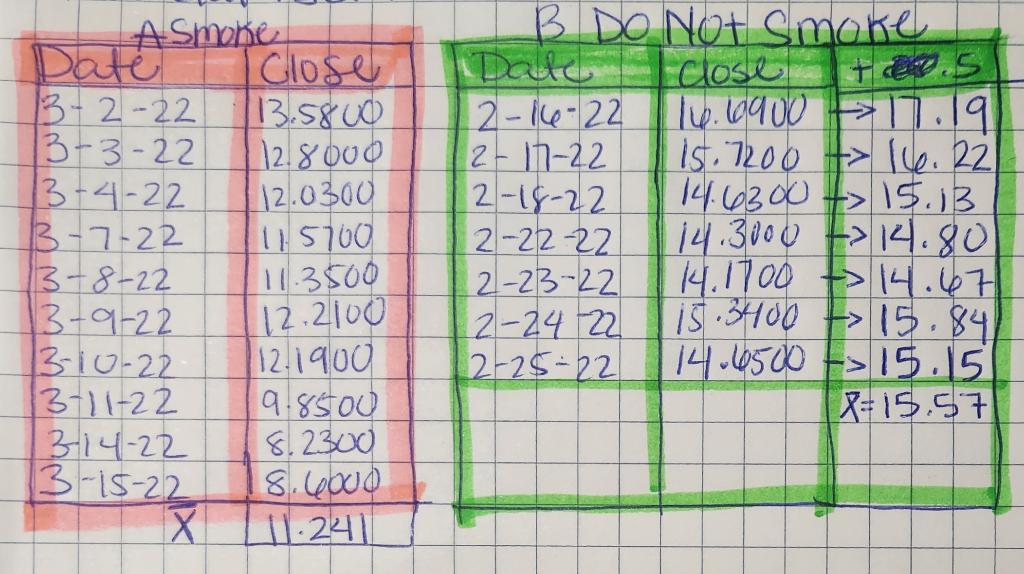 A Smoke
Date Close
3-2-22 13.5800
3-3-22 12.8000
3-4-22 12.0300
3-7-22 11.5700
3-8-22 11.3500
3-9-22 12.2100
3-10-22 12.1900
3-11-22 9.8500
3-14-22 8.2300
3-15-22 8.6000
X̅ 11.241
B Do Not Smoke
Date Close + .5
2-16-22 16.6900 → 17.19
2-17-22 15.7200 → 16.22
2-18-22 14.6300 → 15.13
2-22-22 14.3000 → 14.80
2-23-22 14.1700 → 14.67
2-24-22 15.3400 → 15.84
2-25-22 14.6500 → 15.15
x̅=15.57